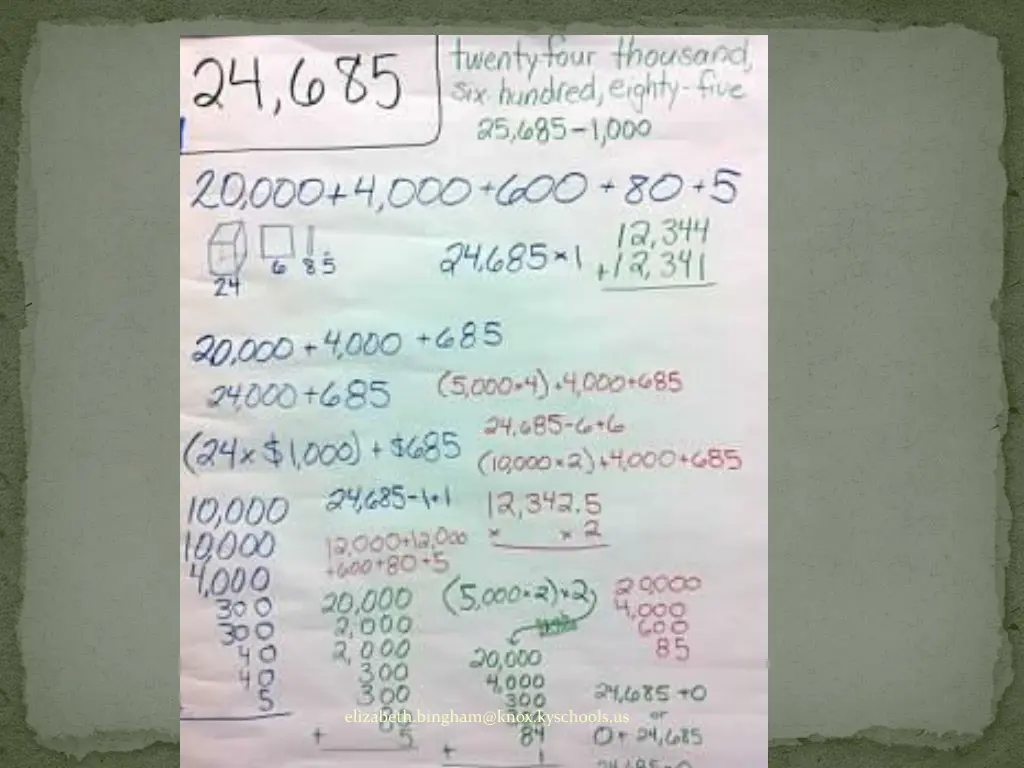 24,685
twenty-four thousand,
six hundred, eighty-five
25,685-1,000
20,000+4,000+600+80+5
24
6
8
5
24,685×1
12,344
+12,341
20,000+4,000+685
24,000+685
(5,000×4)+4,000+685
24,685-6+6
(24×$1,000)+$685
(10,000×2)+4,000+685
24,685-1+1
12,342.5
× × 2
10,000
10,000
4,000
300
300
40
40
5
12,000+12,000
+600+80+5
20,000
2,000
2,000
300
300
+ 5
(5,000×2)×2
20,000
4,000
300
84
+ 1
20,000
4,000
600
85
24,685+0
or
0+24,685
24,685-0
elizabeth.bingham@knox.kyschools.us